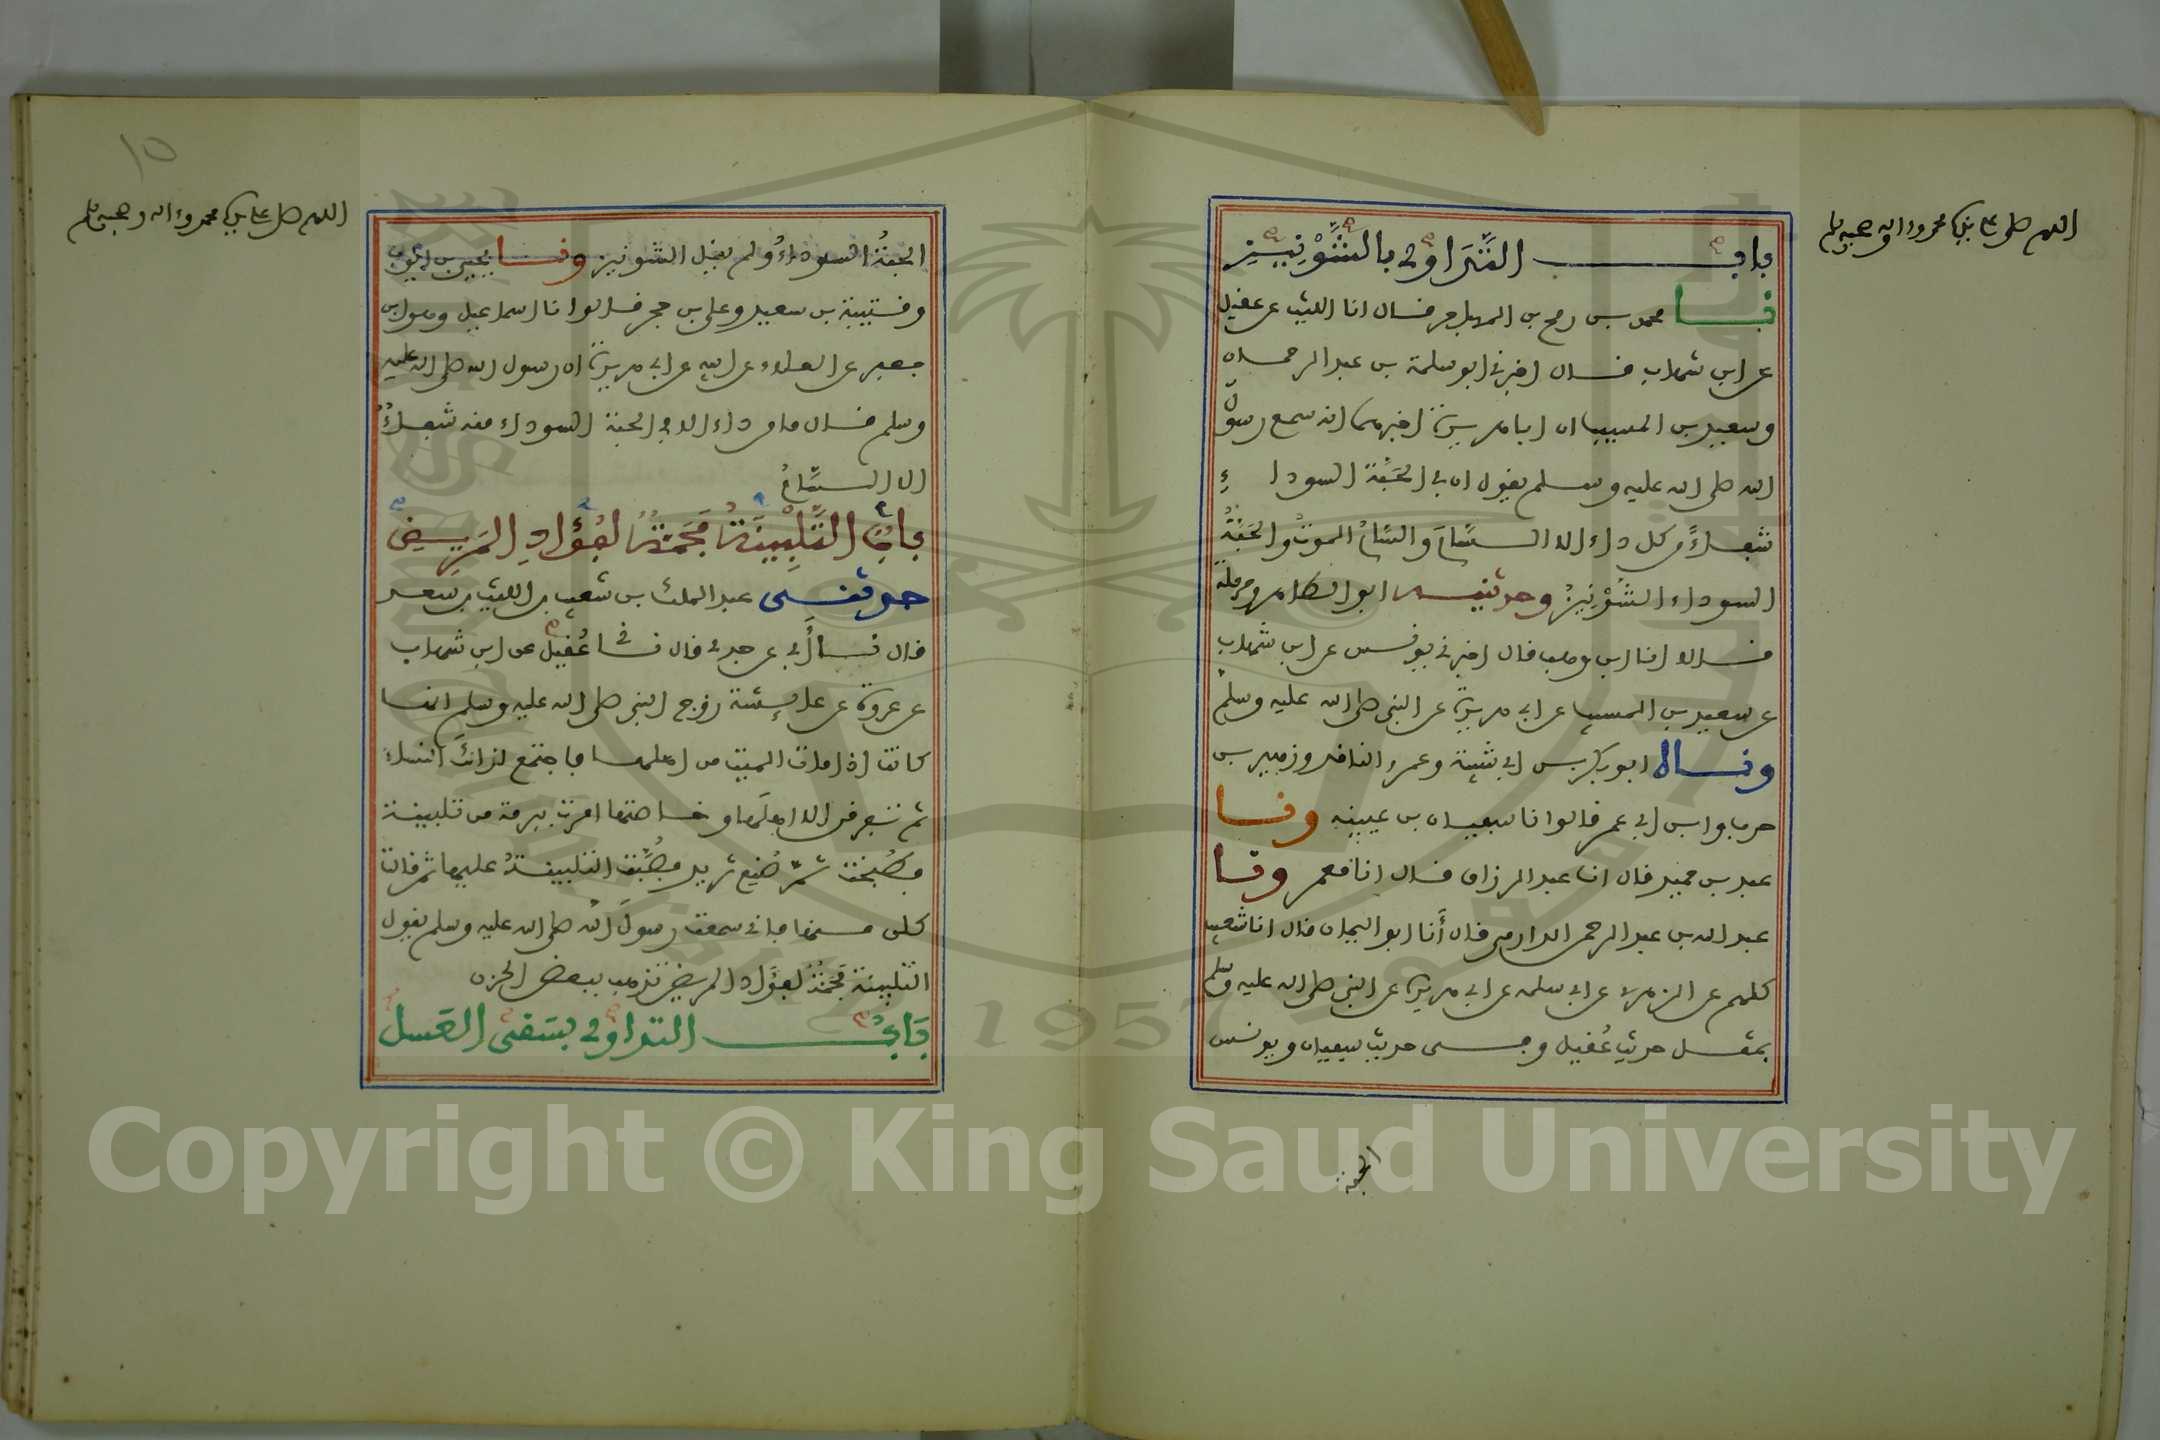 اللهم صل على نبيك محمد وءاله وصحبه وسلم
باب التداوي بالشونيز
نا محمد بن رمح بن المهاجر قال انا الليث عن عقيل
عن ابن شهاب قال اخبرني ابو سلمة بن عبد الرحمان
وسعيد بن المسيب ان ابا هريرة اخبرهما انه سمع رسول
الله صلى الله عليه وسلم يقول ان في الحَبَّة السوداءِ
شفاءً من كل داء الا السَّامَ والسَّامُ الموتُ والحَبَّةُ
السوداء الشُّوْنِيزُ وحدثنيه ابو الطاهر وحرملة
قالا انا ابن وهب قال اخبرني يونس عن ابن شهاب
عن سعيد بن المسيب عن ابي هريرة عن النبي صلى الله عليه وسلم
وقال ابو بكر بن ابي شيبة وعمرو الناقد وزهير بن
حرب وابن ابي عمر قالوا نا سفيان بن عيينة ونا
عبد بن حميد قال انا عبد الرزاق قال انا معمر ونا
عبد الله بن عبد الرحمن الدارمي قال أنا ابو اليمان قال انا شعيب
كلهم عن الزهري عن ابي سلمه عن ابي هريرة عن النبي صلى الله عليه وسلم
بمثل حديث عُقيل وفي حديث سفيان ويونس
الحبة
١٥
اللهم صل على نبيك محمد وءاله وصحبه وسلم
الحبةُ السوداءُ ولم يقل الشونيز ونا يحيى بن ايوب
وقتيبة بن سعيد وعلي بن حجر قالوا نا اسماعيل وهو ابن
جعفر عن العلاء عن ابيه عن ابي هريرة ان رسول الله صلى الله عليه
وسلم قال ما من داء الا في الحبة السوداء منه شفاءٌ
الا السَّامُ
بابُ التَّلْبِينَةُ مَجَمَّةٌ لفُؤَادِ المَرِيضِ
حدثني عبد الملك بن شعيب بن الليث بن سعد
قال نا أبي عن جدي قال ني عُقيل عن ابن شهاب
عن عروة عن عايشة زوج النبي صلى الله عليه وسلم انها
كانت اذا مات الميت من اهلها فاجتمع لذالك النساء
ثم تفرقن الا اهلَها وخاصتها امرت ببرمة من تلبينة
فطُبخت ثمَّ صُنع ثريد فصُبَّت التلبينةُ عليها ثم قالت
كلن منها فاني سمعت رسولَ الله صلى الله عليه وسلم يقول
التلبينة مَجَمَّةٌ لفؤاد المريض تذهب ببعض الحزن
بَابُ التداوي بسَقي العَسل
1957
Copyright © King Saud University